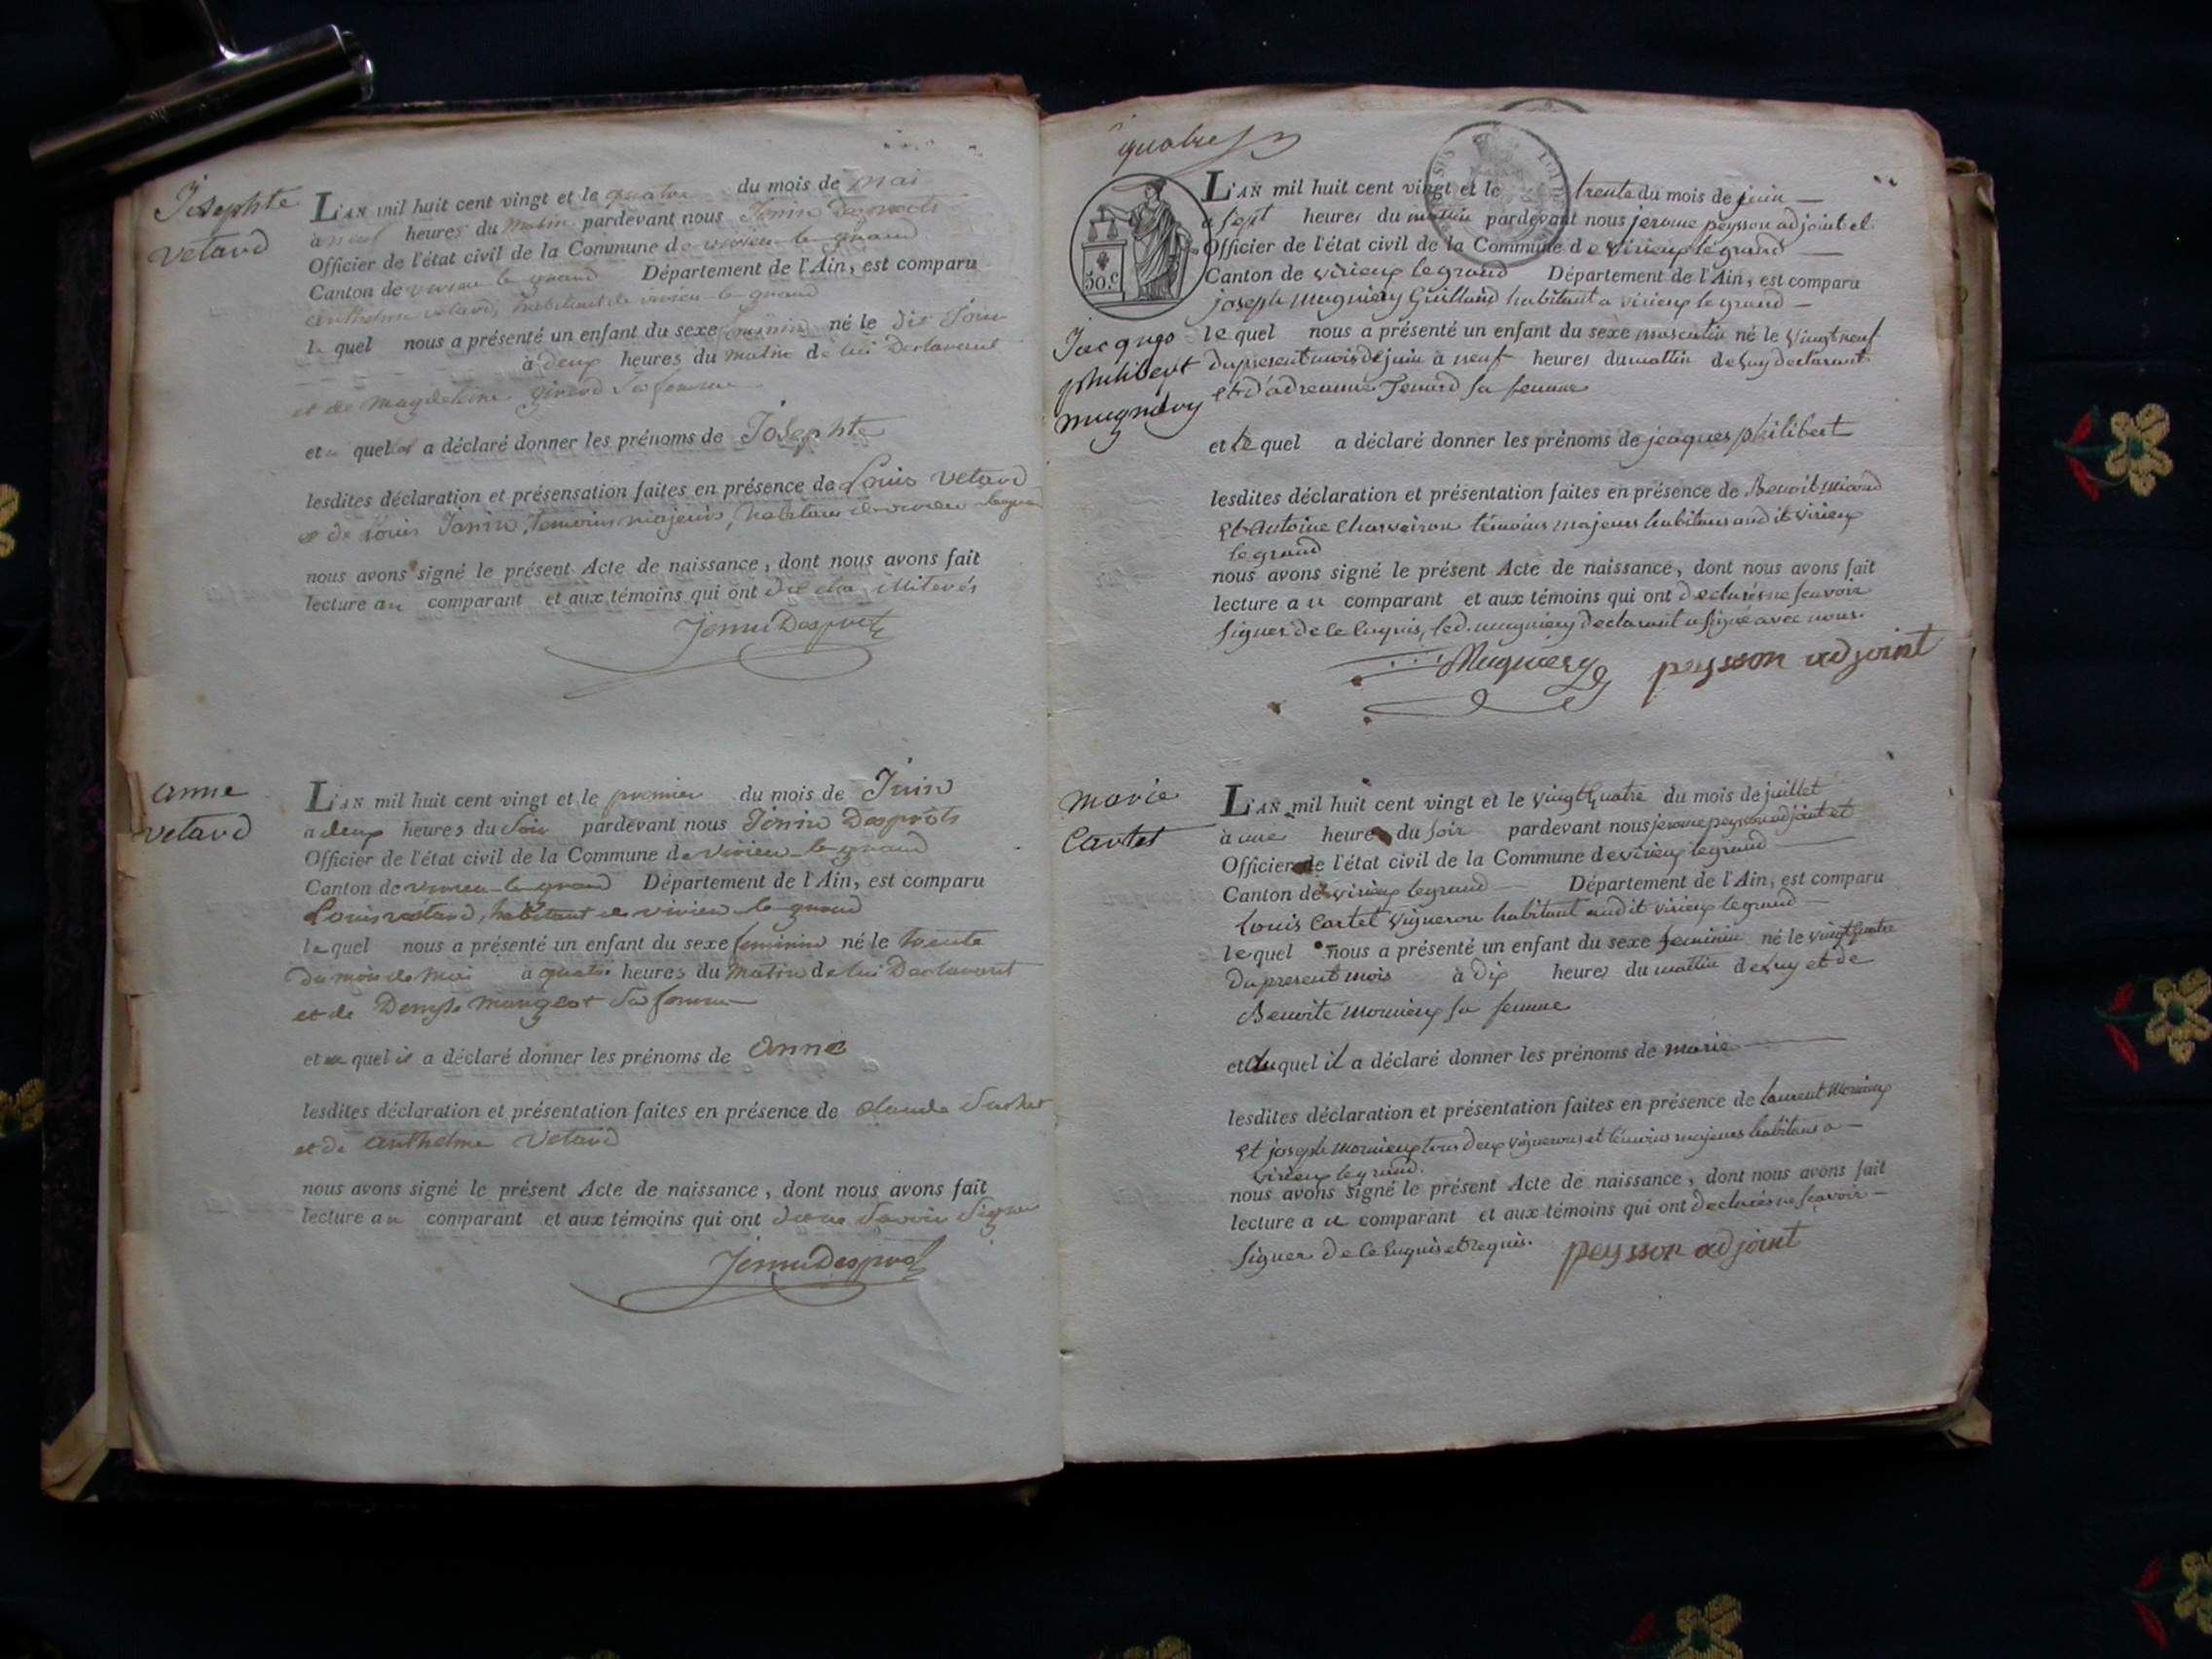 Josephte
Vetard
L'AN mil huit cent vingt et le quatre du mois de mai
à neuf heures du matin pardevant nous Jenin Desprots
Officier de l'état civil de la Commune de virieu-le-grand
Canton de virieu le grand Département de l'Ain, est comparu
anthelme vetard, habitant de virieu-le-grand
le quel nous a présenté un enfant du sexe feminin né le dit Jour
à deux heures du matin de lui Declarent
et de magdeleine girerd sa femme
et quel a déclaré donner les prénoms de Josephte
lesdites déclaration et présensation faites en présence de Louis Vetard
et de Louis Janin, temoins majeurs, habitans
nous avons signé le présent Acte de naissance, dont nous avons fait
lecture au comparant et aux témoins qui ont illiterés
Jenin Desprots
anne
vetard
L'AN mil huit cent vingt et le premier du mois de Juin
a deux heures du soir pardevant nous Jenin Desprots
Officier de l'état civil de la Commune de virieu-le-grand
Canton de virieu-le-grand Département de l'Ain, est comparu
Louis vetard, habitant de virieu-le-grand
le quel nous a présenté un enfant du sexe feminin né le trente
du mois de mai à quatre heures du matin de lui Declarant
et de mongeot sa femme
et quel il a déclaré donner les prénoms de anne
lesdites déclaration et présentation faites en présence de claude
et de anthelme Vetard
nous avons signé le présent Acte de naissance, dont nous avons fait
lecture au comparant et aux témoins qui ont Savoir Signer
Jenin Desprots
quatre
50.c
L'AN mil huit cent vingt et le trente du mois de juin
a sept heures du matin pardevant nous jerome peysson adjoint et
Officier de l'état civil de la Commune de virieux le grand
Canton de virieux le grand Département de l'Ain, est comparu
joseph mugniery Guilland habitant a virieux le grand
Jacques
philibert
mugniery
le quel nous a présenté un enfant du sexe masculin né le vingt neuf
du present mois de juin à neuf heures du mattin de luy declarant
et d'adreanne Tenard sa femme
et le quel a déclaré donner les prénoms de jeaques philibert
lesdites déclaration et présentation faites en présence de Benoit
et antoine Charveiron témoins majeurs habitans audit virieux
le grand
nous avons signé le présent Acte de naissance, dont nous avons fait
lecture a u comparant et aux témoins qui ont declarés ne scavoir
signer de ce enquis, led. mugniery declarant a signé avec nous.
Mugniery peysson adjoint
marie
Cartet
L'AN mil huit cent vingt et le vingt quatre du mois de juillet
à une heure du soir pardevant nous jerome peysson adjoint et
Officier de l'état civil de la Commune de virieux le grand
Canton de virieux le grand Département de l'Ain, est comparu
Louis Cartet vigneron habitant audit virieux le grand
le quel nous a présenté un enfant du sexe feminin né le vingt quatre
du present mois à dix heures du mattin de luy et de
Benoite Monnieux sa femme
et auquel il a déclaré donner les prénoms de marie
lesdites déclaration et présentation faites en présence de laurent Monnieux
et joseph Monnieux tous deux vignerons et témoins majeurs habitans a
virieux le grand.
nous avons signé le présent Acte de naissance, dont nous avons fait
lecture a u comparant et aux témoins qui ont declarés ne scavoir
signer de ce enquis et requis. peysson adjoint